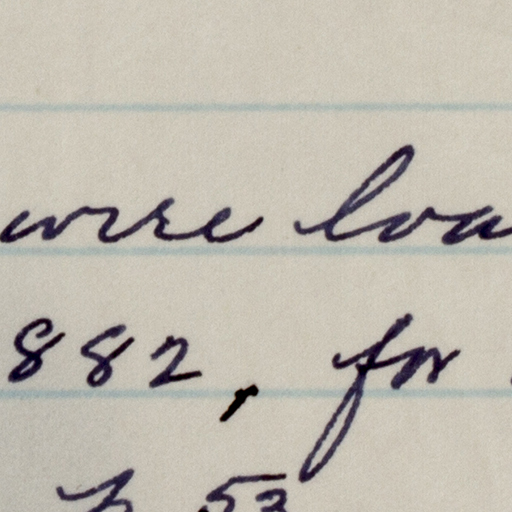 were loa
882, for
53